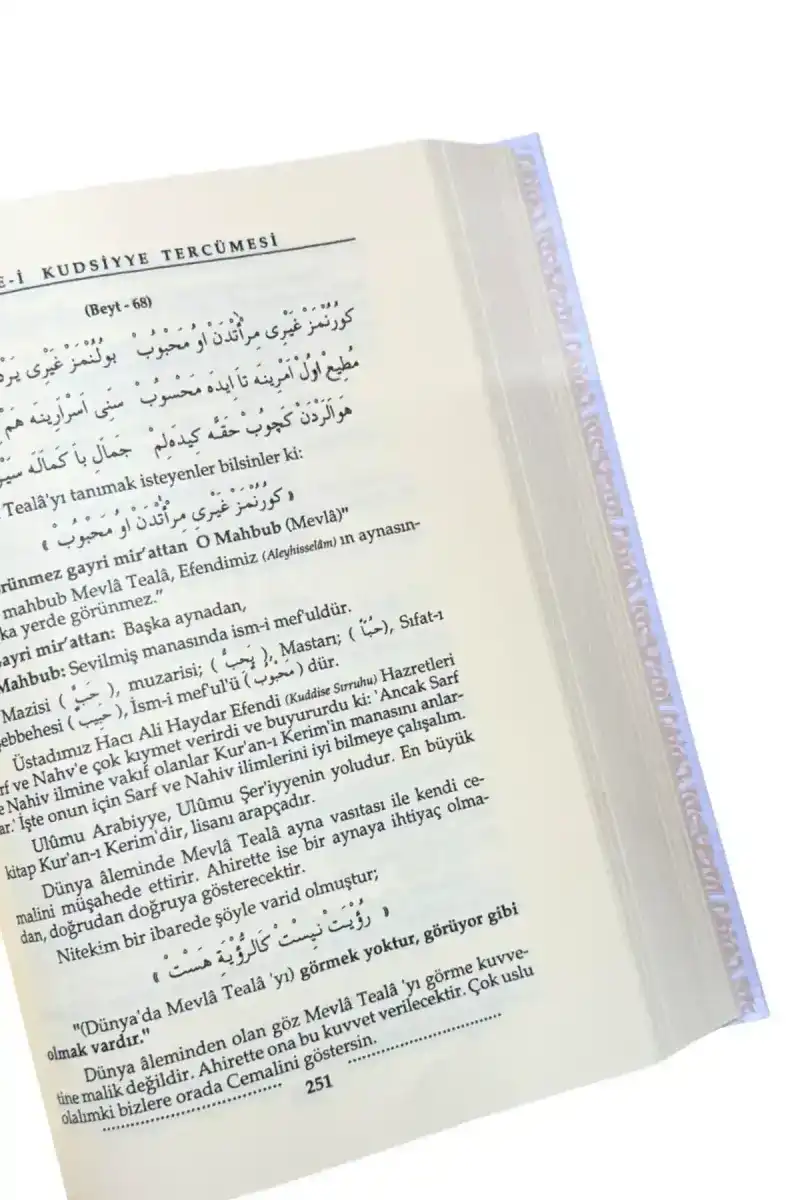 E-İ KUDSİYYE TERCÜMESİ
(Beyt - 68)
كُورُنْمَزْ غَيْرِى مِرأٰتْدَنْ اُو مَحْبُوبْ بُولُنْمَزْ غَيْرِى
مُطِيعْ اُولْ اَمْرِينَه تَا اَيدَه مَحْسُوبْ سَنِى اَسْرَارِينَه هَمْ
هَوَالَرْدَنْ كَچُوبْ حَقَّه كِيدَه لِمْ جَمَالِ بَا كَمَالَه
Tealâ'yı tanımak isteyenler bilsinler ki:
« كُورُنْمَزْ غَيْرِي مِرأٰتْدَنْ اُو مَحْبُوبْ »
rünmez gayri mir'attan O Mahbub (Mevlâ)"
mahbub Mevlâ Tealâ, Efendimiz (Aleyhisselâm) ın aynasın-
ka yerde görünmez."
ayri mir'attan: Başka aynadan,
Mahbub: Sevilmiş manasında ism-i mef'uldür.
Mazisi ( حَبَّ ), muzarisi; ( يَحِبُّ ), Mastarı; ( حُبًّا ), Sıfat-ı
ebbehesi ( حَبِيبٌ ), İsm-i mef'ul'ü ( مَحْبُوبٌ ) dür.
Üstadımız Hacı Ali Haydar Efendi (Kuddise Sırruhu) Hazretleri
rf ve Nahv'e çok kıymet verirdi ve buyururdu ki: 'Ancak Sarf
e Nahiv ilmine vakıf olanlar Kur'an-ı Kerim'in manasını anlar-
ar.' İşte onun için Sarf ve Nahiv ilimlerini iyi bilmeye çalışalım.
Ulûmu Arabiyye, Ulûmu Şer'iyyenin yoludur. En büyük
kitap Kur'an-ı Kerim'dir, lisanı arapçadır.
Dünya âleminde Mevlâ Tealâ ayna vasıtası ile kendi ce-
malini müşahede ettirir. Ahirette ise bir aynaya ihtiyaç olma-
dan, doğrudan doğruya gösterecektir.
Nitekim bir ibarede şöyle varid olmuştur;
« رُؤْيَتْ نِيسْتْ كَالرُّؤْيَةِ هَسْتْ »
"(Dünya'da Mevlâ Tealâ 'yı) görmek yoktur, görüyor gibi
olmak vardır."
Dünya âleminden olan göz Mevlâ Tealâ 'yı görme kuvve-
tine malik değildir. Ahirette ona bu kuvvet verilecektir. Çok uslu
olalımki bizlere orada Cemalini göstersin.
251